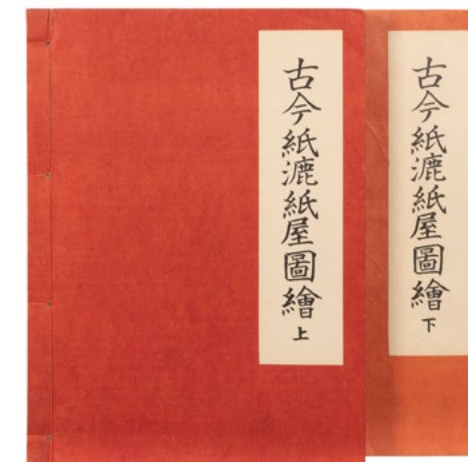 古今紙漉紙屋圖繪上
古今紙漉紙屋圖繪下